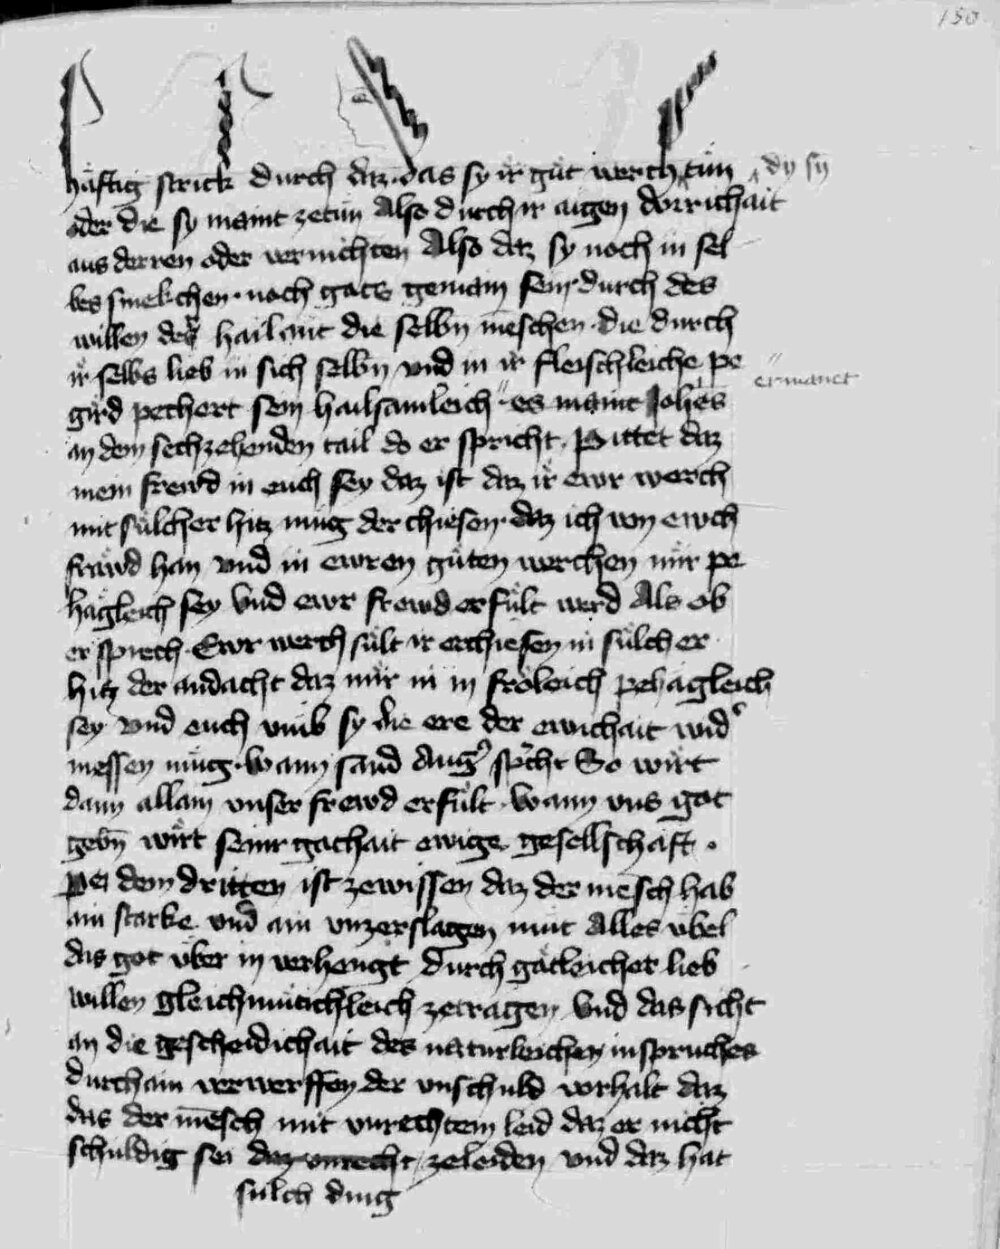 150
häftig strick durch daz das sy ir güt werch tün dy sy
oder die sy maint zetün Also durch ir aigen dorrichait
aus derren oder vernichten Also daz sy noch in sel
bes smekchen · noch gots genam sein durch des
willen der hailant die selbn meschen · die durch
ir selbs lieb in sich selbn vnd in ir fleischleiche pe
gird pechert sein hailsamleich " es maint Johes
" ermanet
an dem sechzehenden tail do er spricht · Pittet daz
mein frewd in euch sey daz ist daz ir ewr werch
mit sülcher hitz müg der chiesen · daz ich von ewch
fräwd han vnd in ewren güten werchen mir pe
hägleich sey Vnd ewr frewd erfült werd Als ob
er sprech · Ewr werch sült ir erchiesen in sülcher
hitz der andacht daz mir in in fröleich pehagleich
sey vnd euch vmb sy die ere der ewichait wid
messen müg · Wann sand Aug spricht So wirt
dann allain vnser frewd erfült · Wann vns got
gebn wirt seinr gachait ewige gesellschaft ·
Pei dem dritten ist zewissen daz der mesch hab
ain starke vnd ain vnzerslagen müt Alles übel
das got über in verhengt durch götleicher lieb
willen gleichmütichleich zetragen Vnd das sicht
an die gescheidichait des naturleichen inspruches
durch ain verwerffen der vnschuld vorhalt daz
das der mesch mit vnrechtem leid daz er nicht
schuldig sei daz vnrecht zeleiden vnd daz hat
sülch ding